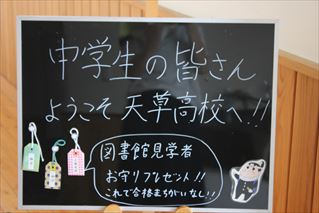 中学生の皆さん
ようこそ 天草高校へ!!
図書館見学者
お守りプレゼント!!
これで合格まちがいなし!!